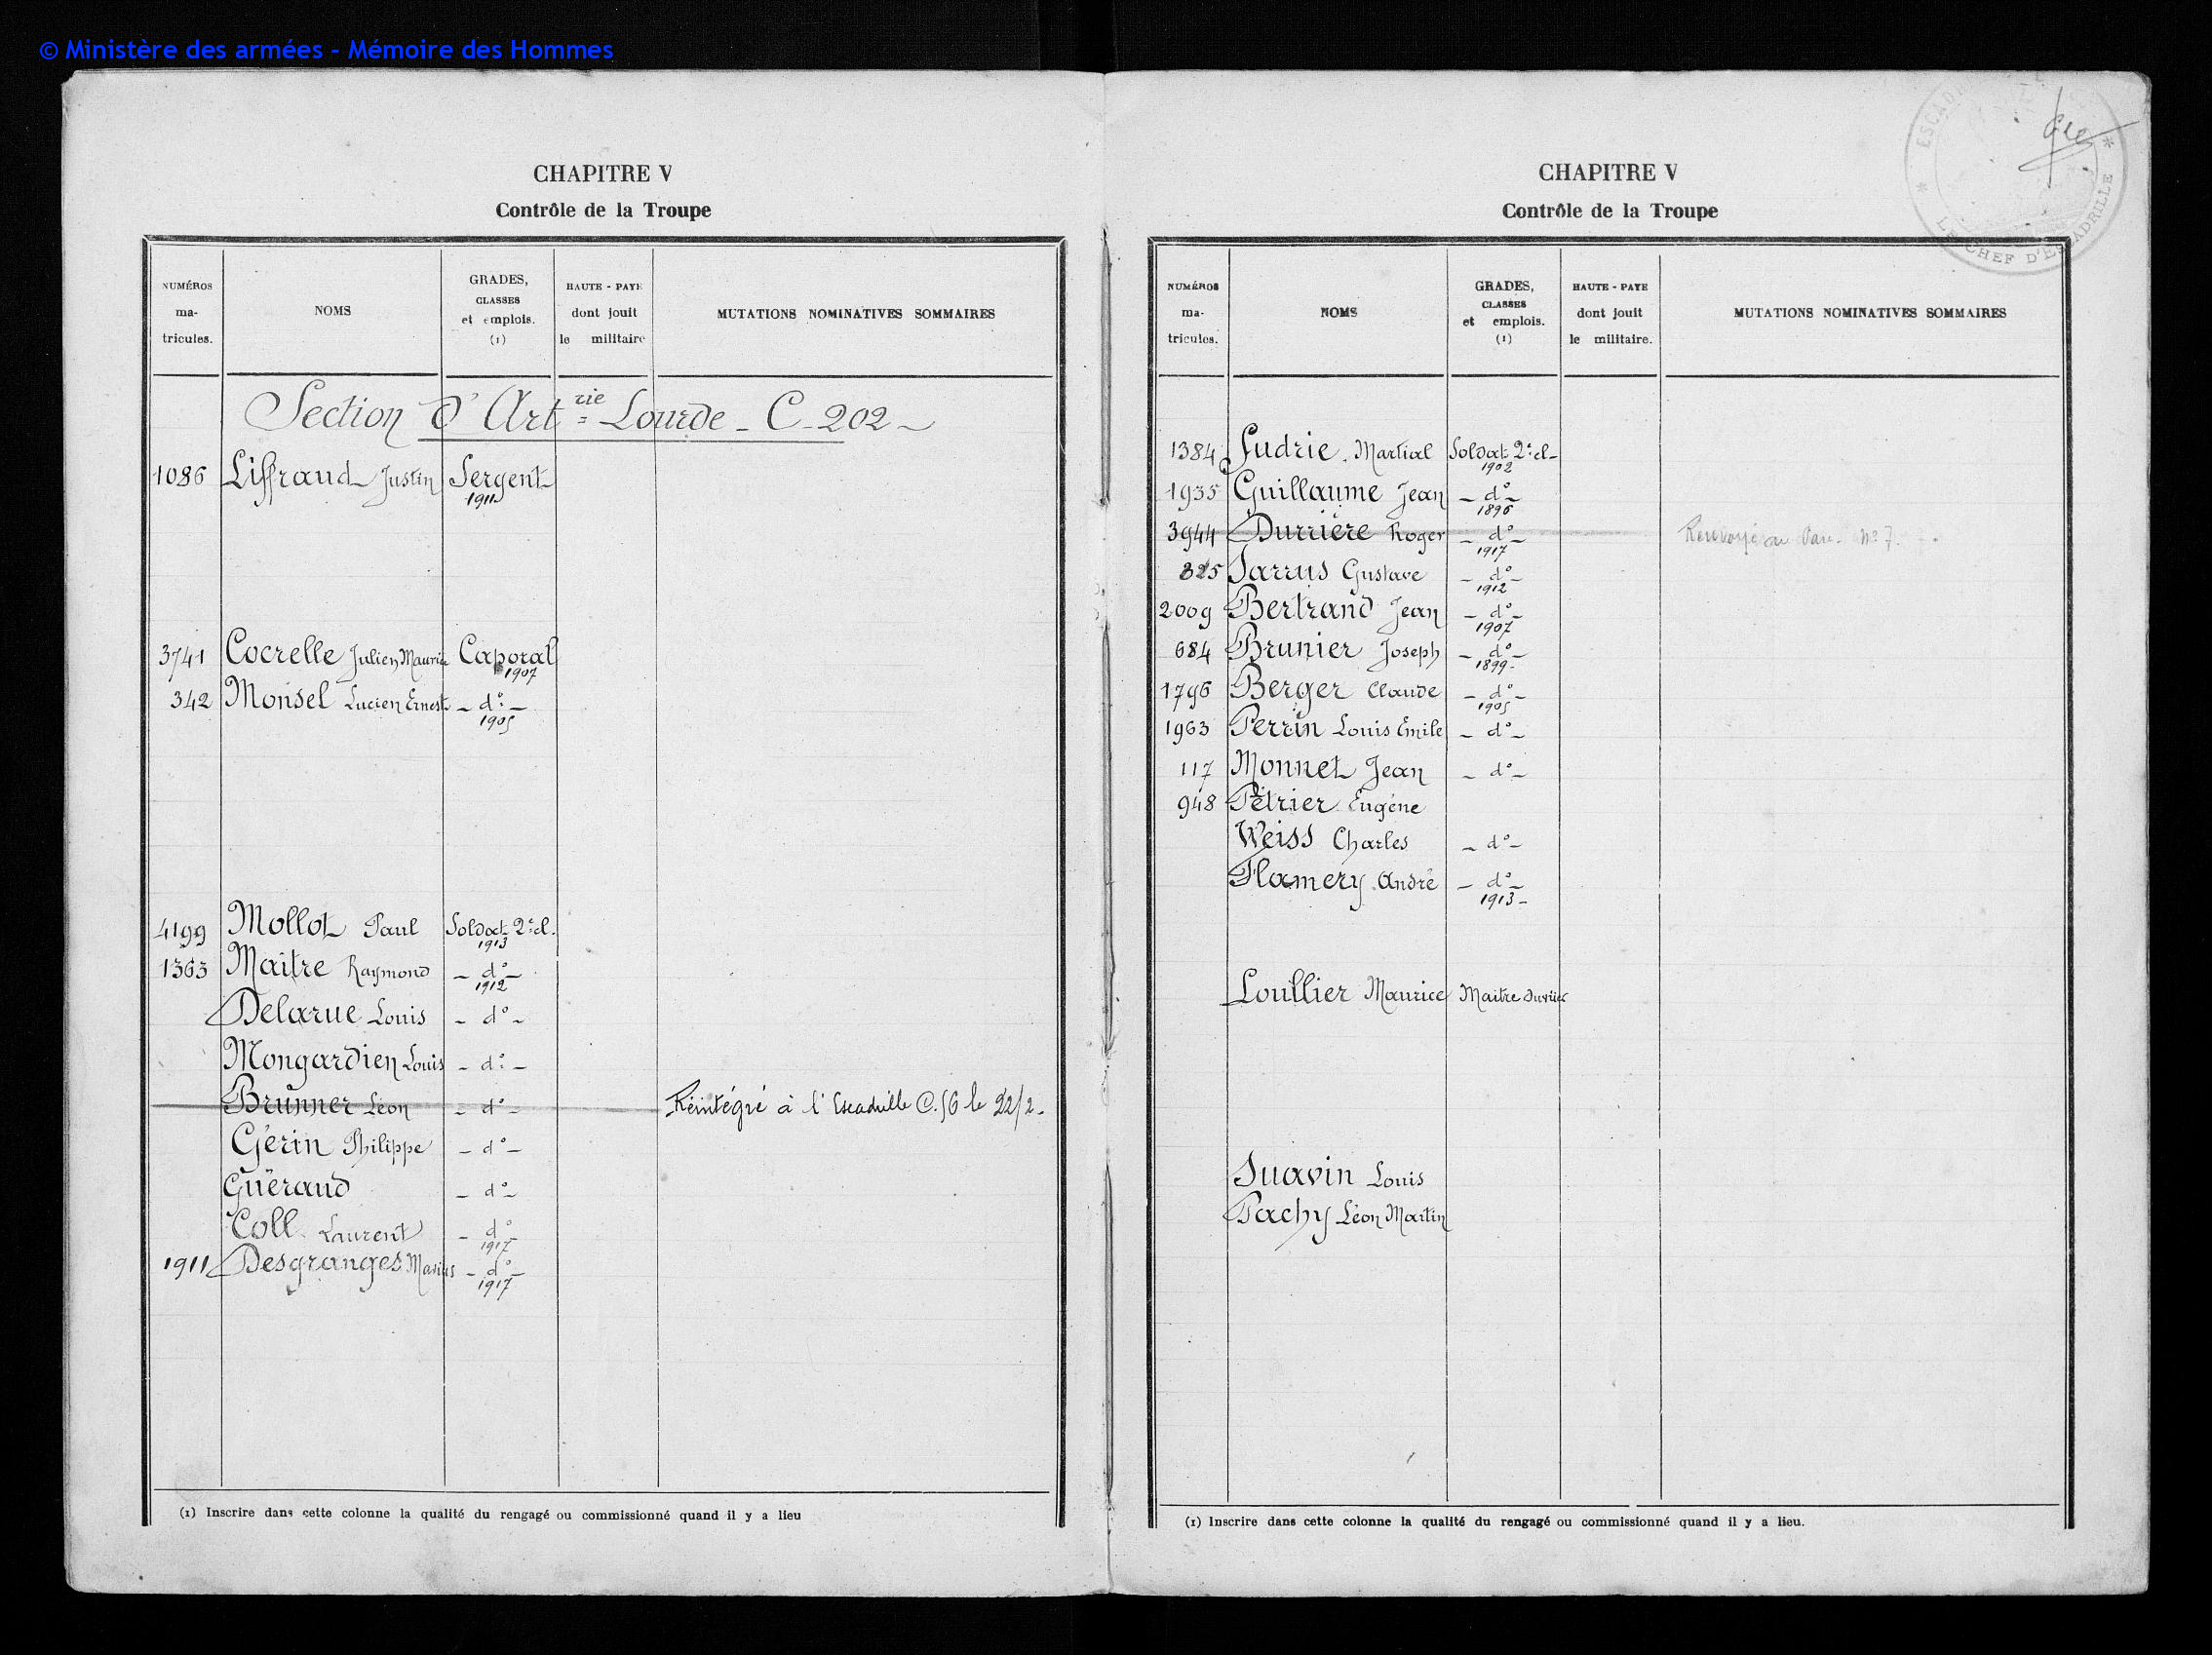 © Ministère des armées - Mémoire des Hommes
CHAPITRE V
Contrôle de la Troupe
NUMÉROS ma- tricules.
NOMS
GRADES, CLASSES et emplois. (1)
HAUTE - PAYE dont jouit le militaire
MUTATIONS NOMINATIVES SOMMAIRES
Section d'Art rie Lourde - C-202 -
1086 Liffraud Justin Sergent
1911
3741 Cocrelle Julien Maurice Caporal
1907
342 Monsel Lucien Ernest - d° -
1905
4199 Mollot Paul Soldat 2e cl.
1913
1363 Maitre Raymond - d° -
1912
Delarue Louis - d° -
Mongardien Louis - d° -
Brunner Léon - d° - Réintégré à l'Escadrille C.56 le 22/2.
Gérin Philippe - d° -
Guérand - d° -
Coll Laurent - d° -
1917
1911 Desgranges Marius - d° -
1917
(1) Inscrire dans cette colonne la qualité du rengagé ou commissionné quand il y a lieu
CHAPITRE V
Contrôle de la Troupe
ESCAD
LE CHEF D'ESCADRILLE
NUMÉROS ma- tricules.
NOMS
GRADES, CLASSES et emplois. (1)
HAUTE - PAYE dont jouit le militaire.
MUTATIONS NOMINATIVES SOMMAIRES
1384 Judrie Martial Soldat 2e cl-
1902
1935 Guillaume Jean - d° -
1896
3944 Durrière Roger - d° - N° 7.
1917
325 Jarrus Gustave - d° -
1912
2009 Bertrand Jean - d° -
1907
684 Brunier Joseph - d° -
1899-
1796 Berger Claude - d° -
1905
1963 Perrin Louis Emile - d° -
117 Monnet Jean - d° -
948 Pétrier Eugène
Weiss Charles - d° -
Flamery André - d° -
1913-
Loullier Maurice Maitre ouvrier
Suavin Louis
Pachy Léon Martin
(1) Inscrire dans cette colonne la qualité du rengagé ou commissionné quand il y a lieu.